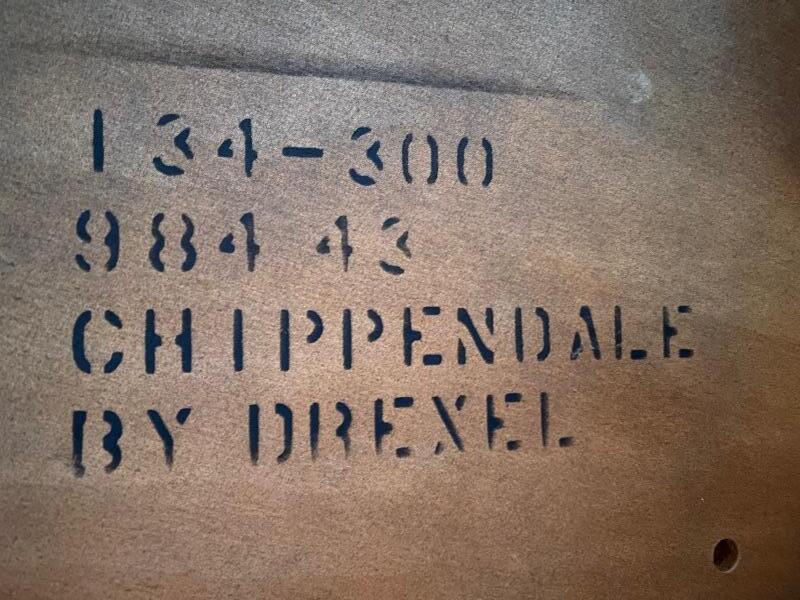 134-300
984 43
CHIPPENDALE
BY DREXEL